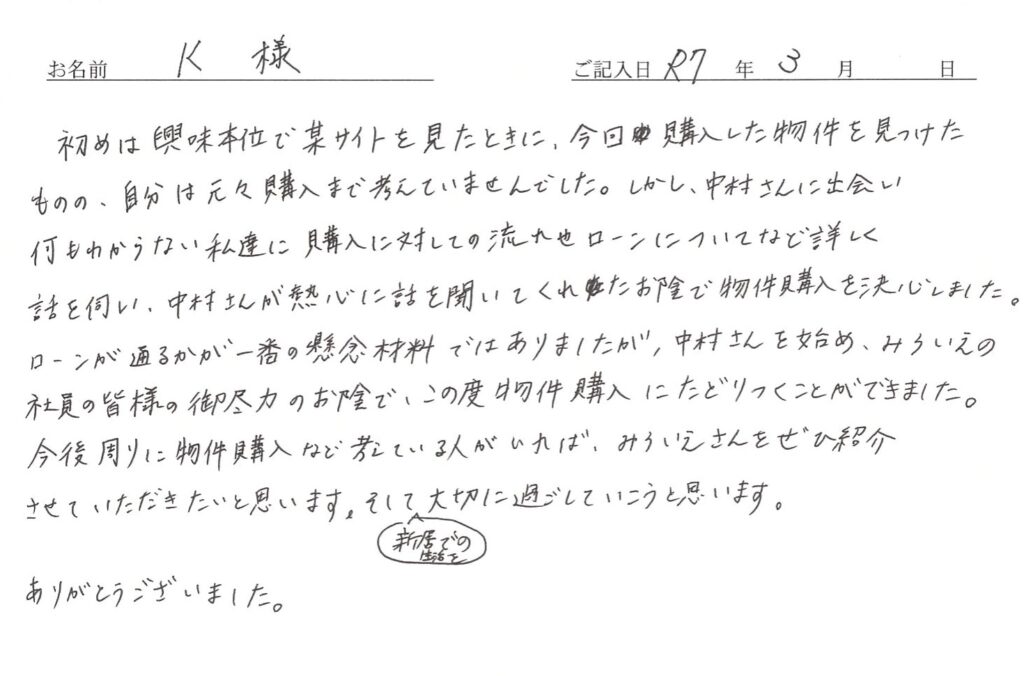 お名前 K 様 ご記入日 R7 年 3 月 日
初めは興味本位で某サイトを見たときに、今回購入した物件を見つけた
ものの、自分は元々購入まで考えていませんでした。しかし、中村さんに出会い
何もわからない私達に購入に対しての流れやローンについてなど詳しく
話を伺い、中村さんが熱心に話を聞いてくれたお陰で物件購入を決心しました。
ローンが通るかが一番の懸念材料ではありましたが、中村さんを始め、みらいえの
社員の皆様の御尽力のお陰で、この度物件購入にたどりつくことができました。
今後周りに物件購入など考えている人がいれば、みらいえさんをぜひ紹介
させていただきたいと思います。そして大切に過ごしていこうと思います。
新居での
生活を
ありがとうございました。